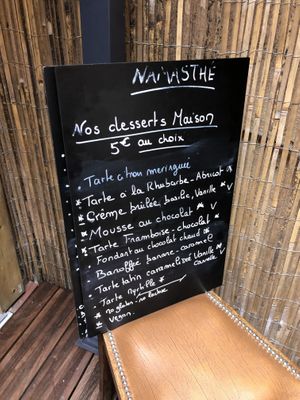 NAMASTHÉ
Nos desserts Maison
5€ au choix
• Tarte citron meringuée
* Tarte à la Rhubarbe - Abricot *
* Crème brûlée basilic, Vanille * V
* Mousse au chocolat * V
* Tarte Framboise - chocolat *
• Fondant au chocolat chaud *
• Banoffee banane - caramel
• Tarte tatin caramelisée Vanille
Cannelle
• Tarte Myrtille *
* no gluten - no lactose
V Vegan.